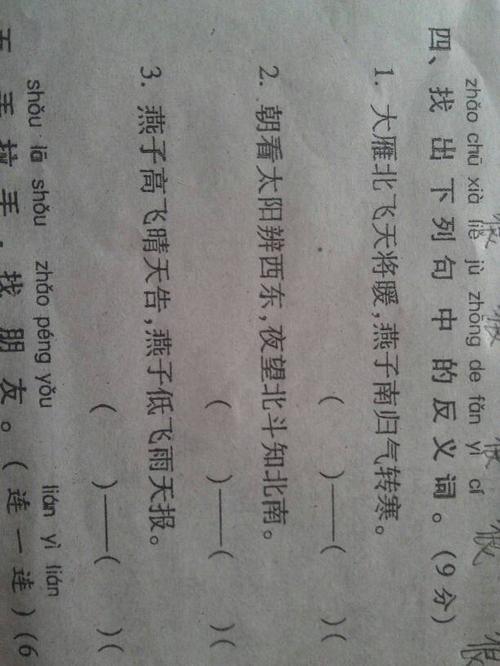 假 假 假 假 假
zhǎo chū xià liè jù zhōng de fǎn yì cí
四、找出下列句中的反义词。(9分)
1. 大雁北飞天将暖,燕子南归气转寒。
( )——( )(
2. 朝看太阳辨西东,夜望北斗知北南。
( )——( )(
3. 燕子高飞晴天告,燕子低飞雨天报。
( )——( )(
shǒu lā shǒu zhǎo péng yǒu lián yì lián
五、手拉手,找朋友。(连一连)(6